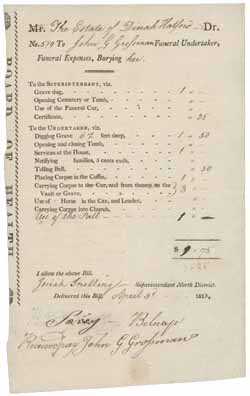 Mr. The Estate of Dinah Halford Dr.
No. 579 To John G Grosman Funeral Undertaker,
Funeral Expenses, Burying her.
To the SUPERINTENDANT, viz.
Grave dug, 1 "
Opening Cemetery or Tomb, "
Use of the Funeral Car, "
Certificate, 25
To the UNDERTAKER, viz.
Digging Grave 6½ feet deep, 1 50
Opening and closing Tomb,
Services at the House, 1 "
Notifying families, 5 cents each,
Tolling Bell, 50
Placing Corpse in the Coffin, 1 "
Carrying Corpse to the Car, and from thence to the
Vault or Grave, } 3 "
Use of Horse in the Car, and Leader,
Carrying Corpse into Church,
Use of the Pall 1 —
$ 9
I allow the above Bill,
Josiah Snelling Superintendant North District.
Delivered this Bill, April 3d 181
Savey — Belnap
Received pay John G Grosman
BOARD OF HEALTH